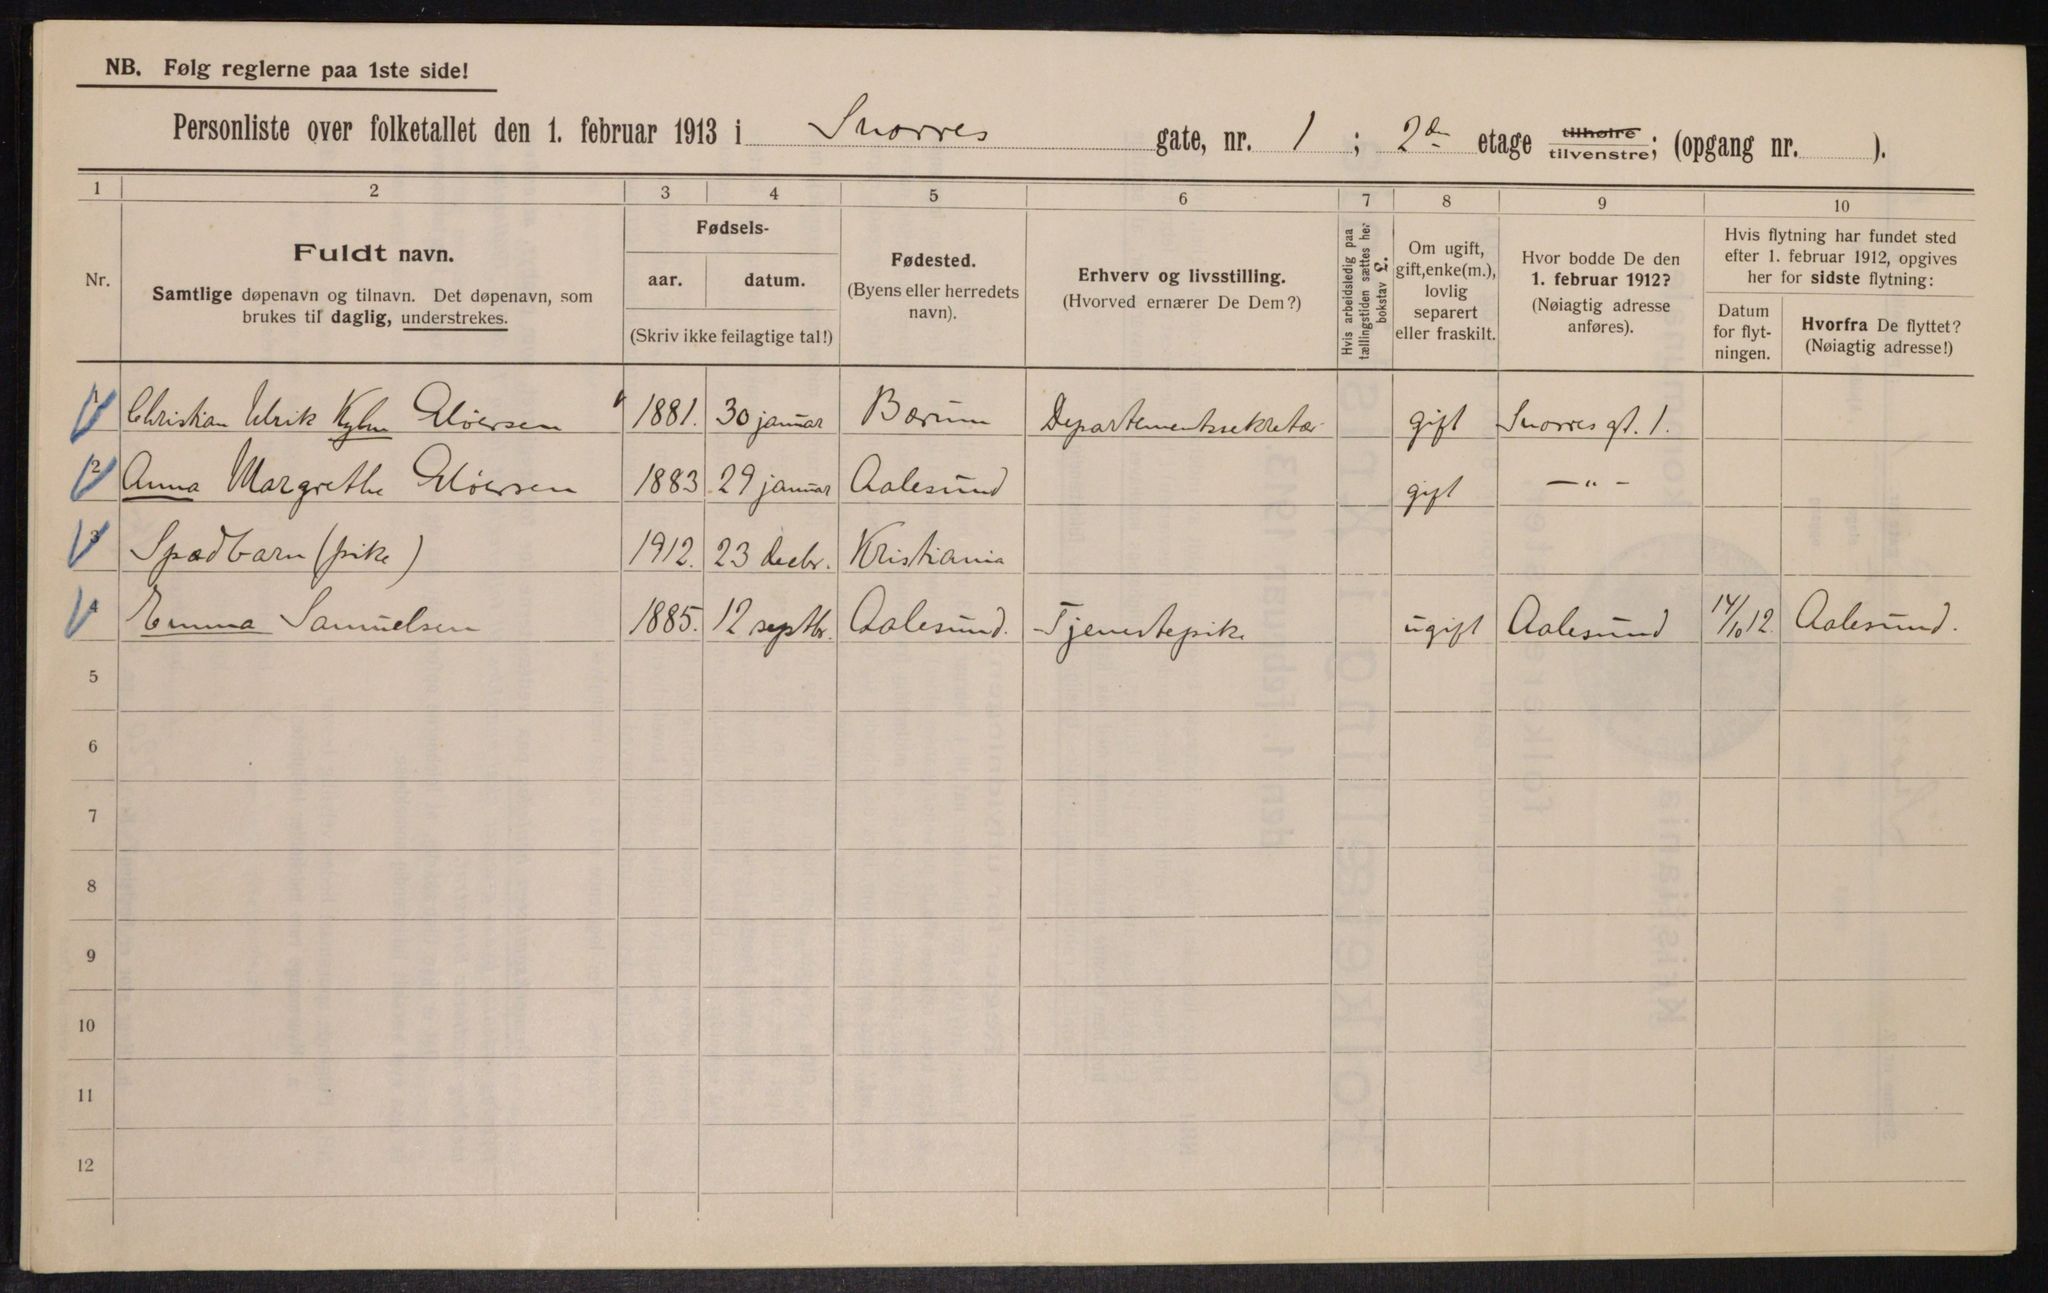 NB. Følg reglerne paa 1ste side!
Personliste over folketallet den 1. februar 1913 i Snorres gate, nr. 1 ; 2den etage tilhøire tilvenstre; (opgang nr. ).
1 2 3 4 5 6 7 8 9 10
Nr.
Fuldt navn.
Samtlige døpenavn og tilnavn. Det døpenavn, som
brukes til daglig, understrekes.
Fødsels-
aar. datum.
(Skriv ikke feilagtige tal!)
Fødested.
(Byens eller herredets
navn).
Erhverv og livsstilling.
(Hvorved ernærer De Dem?)
Hvis arbeidsledig paa
tællingstiden sættes her
bokstav L.
Om ugift,
gift, enke(m.),
lovlig
separert
eller fraskilt.
Hvor bodde De den
1. februar 1912?
(Nøiagtig adresse
anføres).
Hvis flytning har fundet sted
efter 1. februar 1912, opgives
her for sidste flytning:
Datum
for flyt-
ningen.
Hvorfra De flyttet?
(Nøiagtig adresse!)
1 Christian Ulrik Kyhn Gløersen 1881. 30 januar Bærum Departementssekretær gift Snorres gt. 1.
2 Anna Margrethe Gløersen 1883 29 januar Aalesund gift — " —
3 Spædbarn (pike) 1912. 23 decbr. Kristiania
4 Emma Samuelsen 1885. 12 septbr. Aalesund. Tjenestepike ugift Aalesund 14/10 12. Aalesund.
5
6
7
8
9
10
11
12